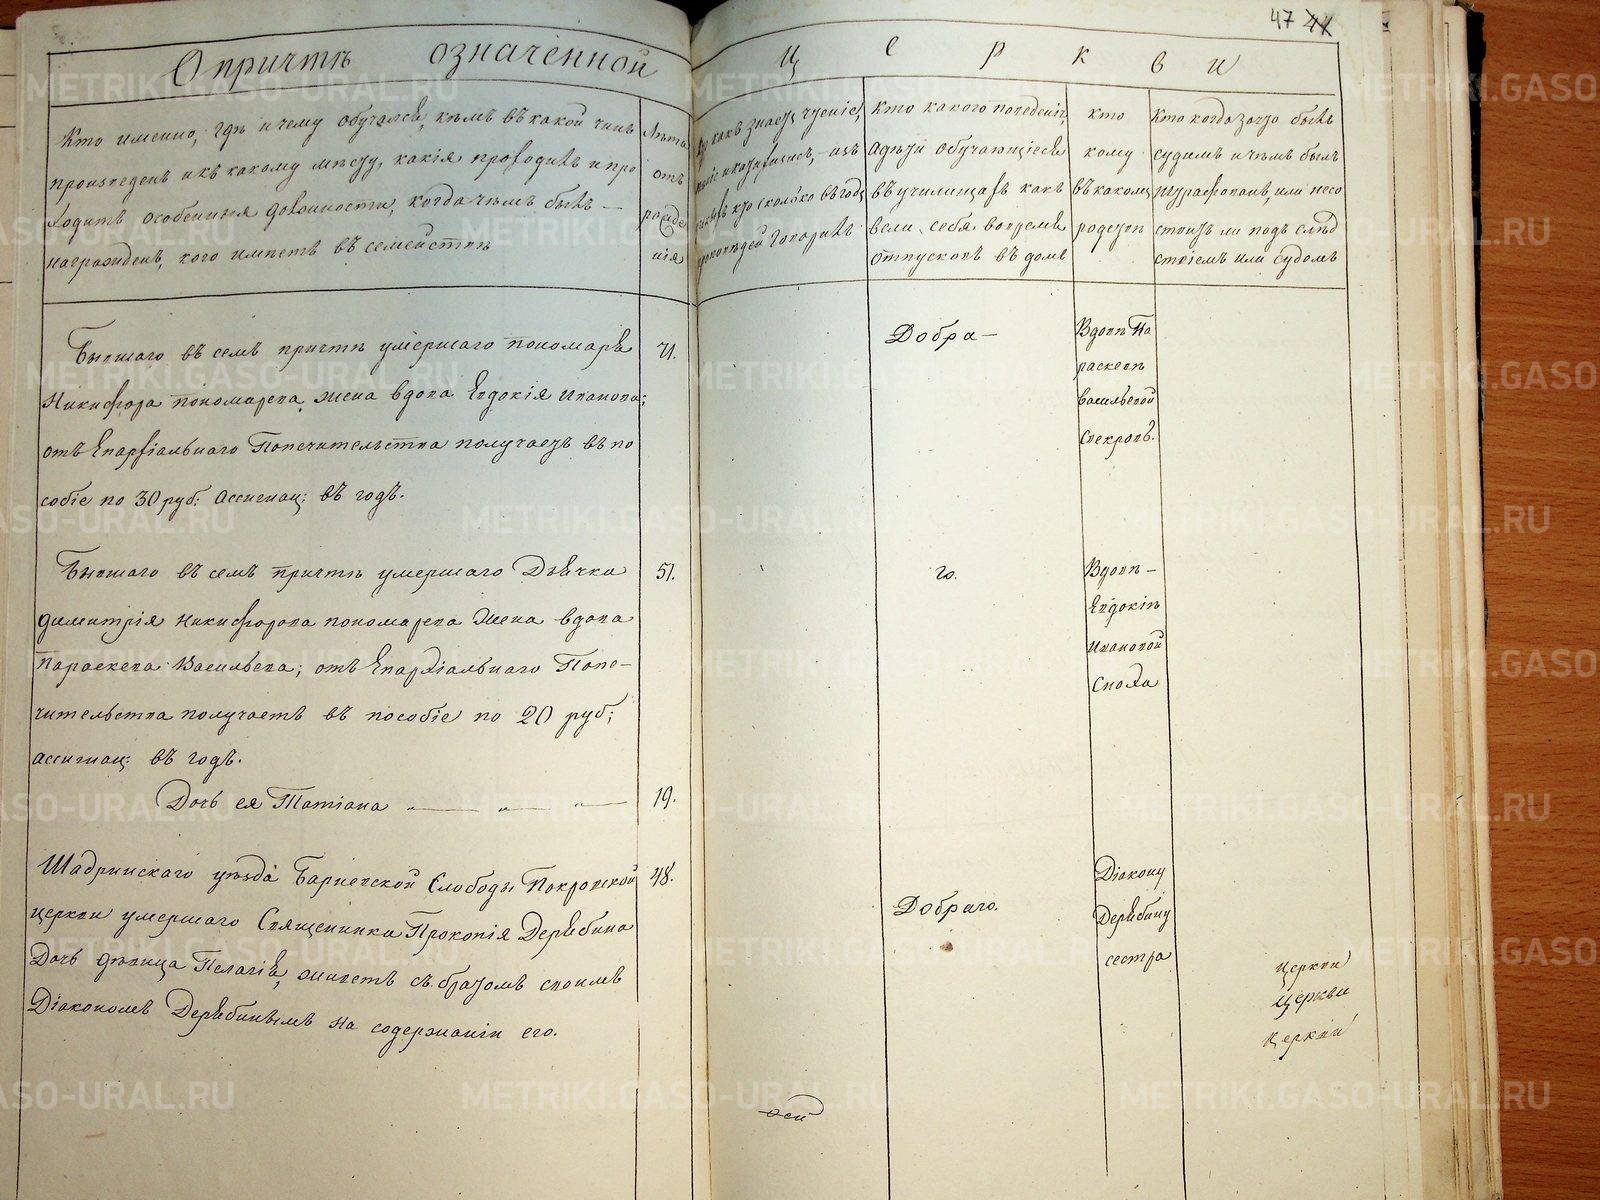 47 44
О причтѣ означенной церкви
Кто именно, гдѣ и чему обучался, кѣмъ въ какой чинъ
произведенъ и къ какому мѣсту, какія проходилъ и про
ходитъ особенныя должности, когда чѣмъ былъ
награжденъ, кого имѣетъ въ семействѣ
Лѣта
отъ
рожде
нія
какъ знаетъ чтеніе,
пѣніе и катихизисъ, – изъ
кто сколько въ годъ
проповѣдей говорилъ
Кто какого поведенія,
а дѣти обучающіеся
въ училищахъ какъ
вели себя во время
отпусковъ въ домъ
кто
кому
въ какомъ
родствѣ
Кто когда за что былъ
судимъ и чѣмъ былъ
штрафованъ, или несо
стоитъ ли подъ слѣд
ствіемъ или судомъ
Бывшаго въ семъ причтѣ умершаго пономаря
Никифора пономарева жена вдова Евдокія Иванова;
отъ Епархіальнаго Попечительства получаетъ въ по
собіе по 30 руб: ассигнац: въ годъ.
71.
Добра –
Вдовѣ Па
раскевѣ
васильевой
свекровь.
Бывшаго въ семъ причтѣ умершаго Дьячка
димитрія никифорова пономарева жена вдова
параскева Васильева; отъ Епархіальнаго Попе–
чительства получаетъ въ пособіе по 20 руб;
ассигнац: въ годъ.
51.
то.
Вдовѣ –
Евдокіѣ
Ивановой
Сноха
Дочь ея Татіана „ „ „
19.
Шадринскаго уѣзда Барневской Слободы Покровской
церкви умершаго Священника Прокопія Дерябина
Дочь дѣвица Пелагія, живетъ съ братомъ своимъ
Діакономъ Дерябинымъ на содержаніи его.
48.
Добраго.
Діакону
Дерябину
сестра
церкви
Церкви
церкви
METRIKI.GASO-URAL.RU